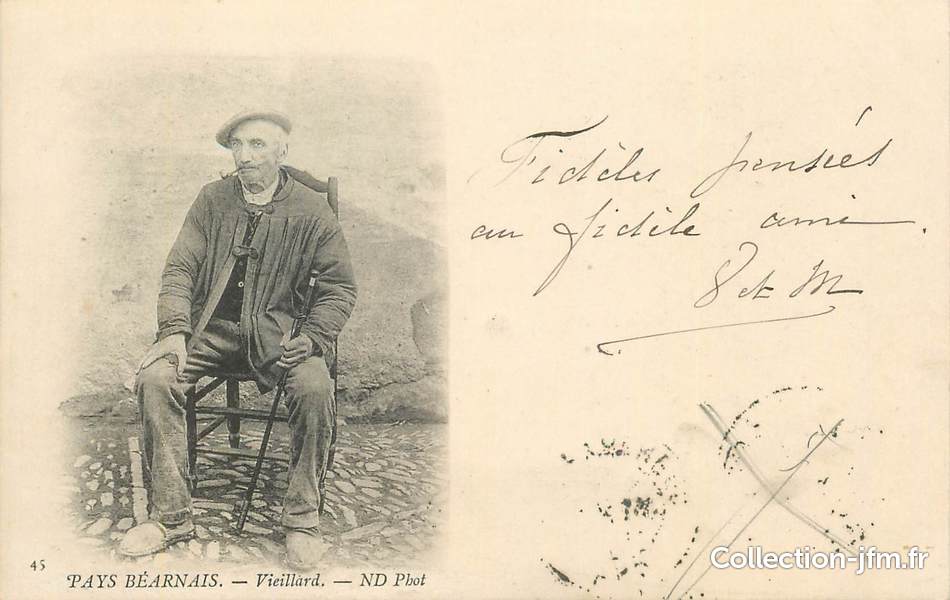 Fidèles pensées
au fidèle ami
et M
45
PAYS BÉARNAIS. — Vieillard. — ND Phot
Collection-jfm.fr